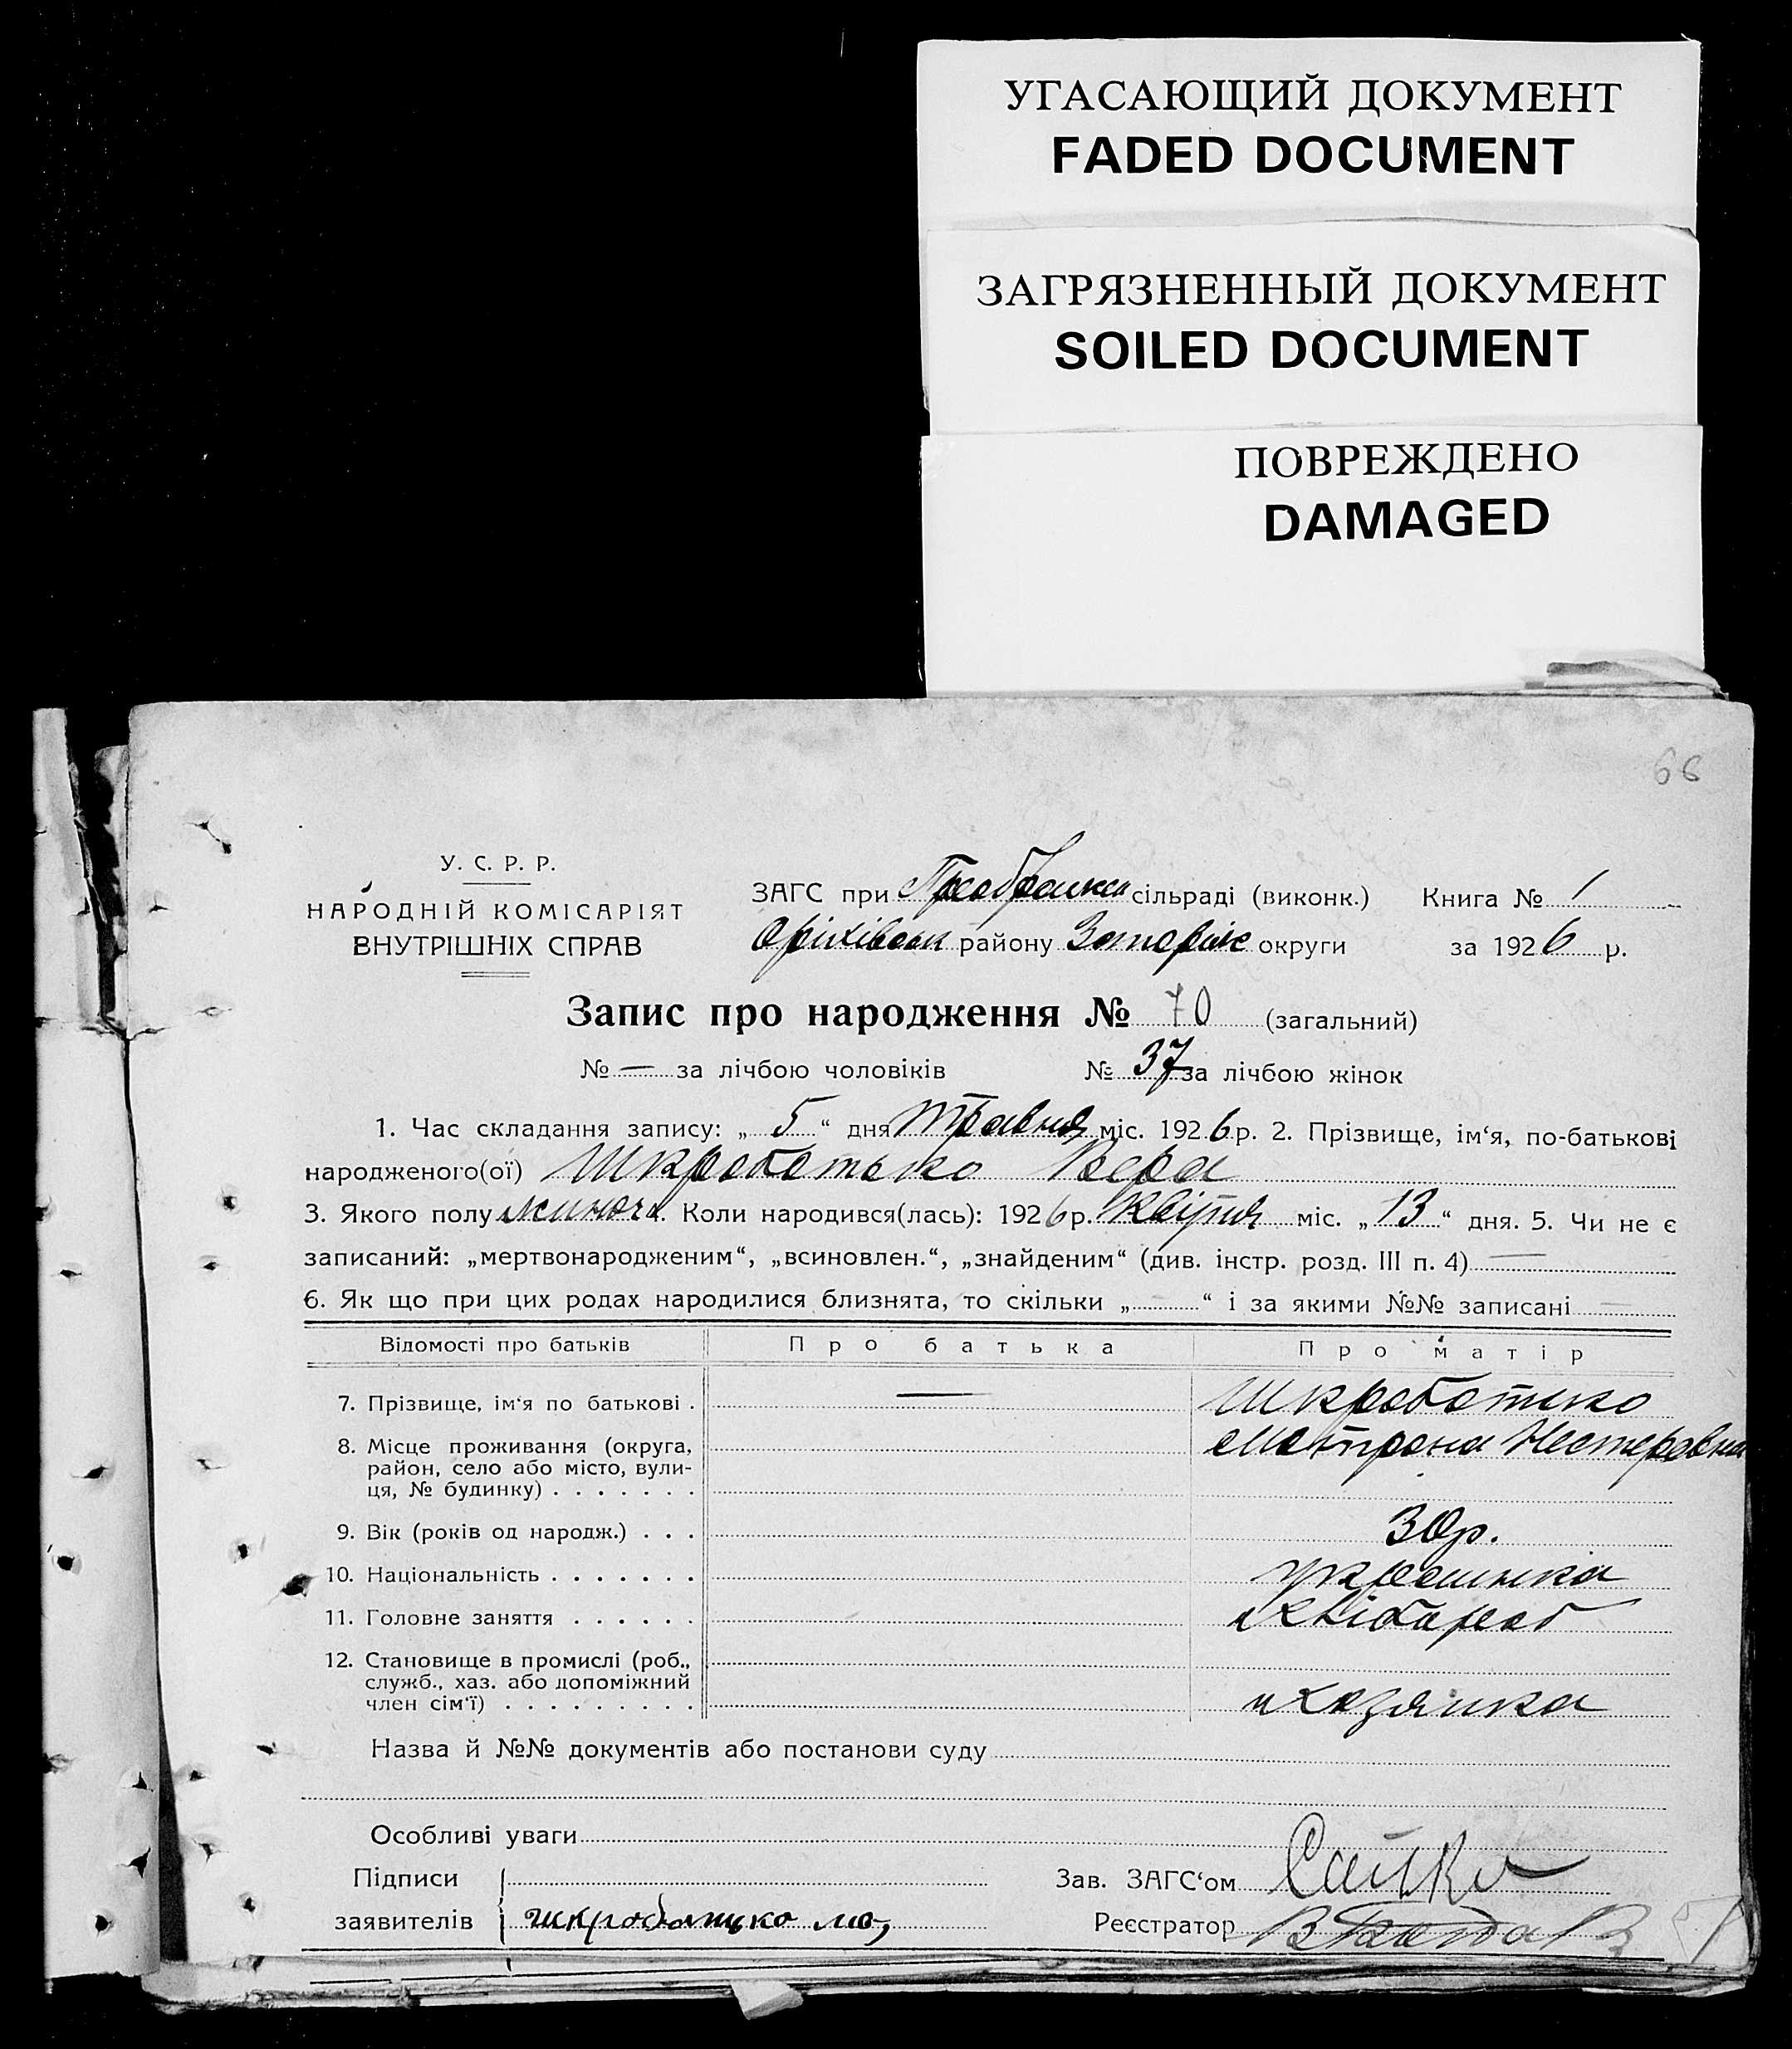 УГАСАЮЩИЙ ДОКУМЕНТ
FADED DOCUMENT
ЗАГРЯЗНЕННЫЙ ДОКУМЕНТ
SOILED DOCUMENT
ПОВРЕЖДЕНО
DAMAGED
66
У. С. Р. Р.
НАРОДНІЙ КОМІСАРІЯТ
ВНУТРІШНІХ СПРАВ
ЗАГС при Преображен сільраді (виконк.) Книга № 1
Оріхівськ району Запоріж округи за 1926 р.
Запис про народження № 70 (загальний)
№ — за лічбою чоловіків № 37 за лічбою жінок
1. Час складання запису: „ 5 “ дня травня міс. 1926 р. 2. Прізвище, ім‘я, по-батькові
народженого(ої) Шкработько Вера
3. Якого полу жиноч. Коли народився(лась): 1926 р. Квітня міс. „ 13 “ дня. 5. Чи не є
записаний: „мертвонародженим“, „всиновлен.“, „знайденим“ (див. інстр. розд. III п. 4) —
6. Як що при цих родах народилися близнята, то скільки „ “ і за якими №№ записані —
Відомості про батьків Про батька Про матір
7. Прізвище, ім‘я по батькові . — Шкработько
8. Місце проживання (округа, Мотрона Нестеровна
район, село або місто, вули-
ця, № будинку) . . . . . . .
9. Вік (років од народж.) . . . 30 р.
10. Національність . . . . . . . украинка
11. Головне заняття . . . . . . хлібороб
12. Становище в промислі (роб.,
служб., хаз. або допоміжний
член сім‘ї) . . . . . . . . . хозяика
Назва й №№ документів або постанови суду
Особливі уваги
Підписи Зав. ЗАГС‘ом Сайко
заявителів шкработько Реєстратор